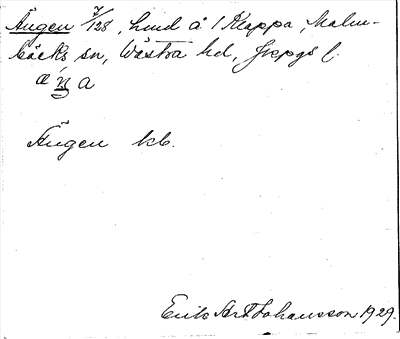 Ängen 7/128, hmd å 1 Klappa, Malm-
bäcks sn, Västra hd, Jkpgs l.
æŋ́a
Ängen kb.
Erik Art. Johansson 1929.